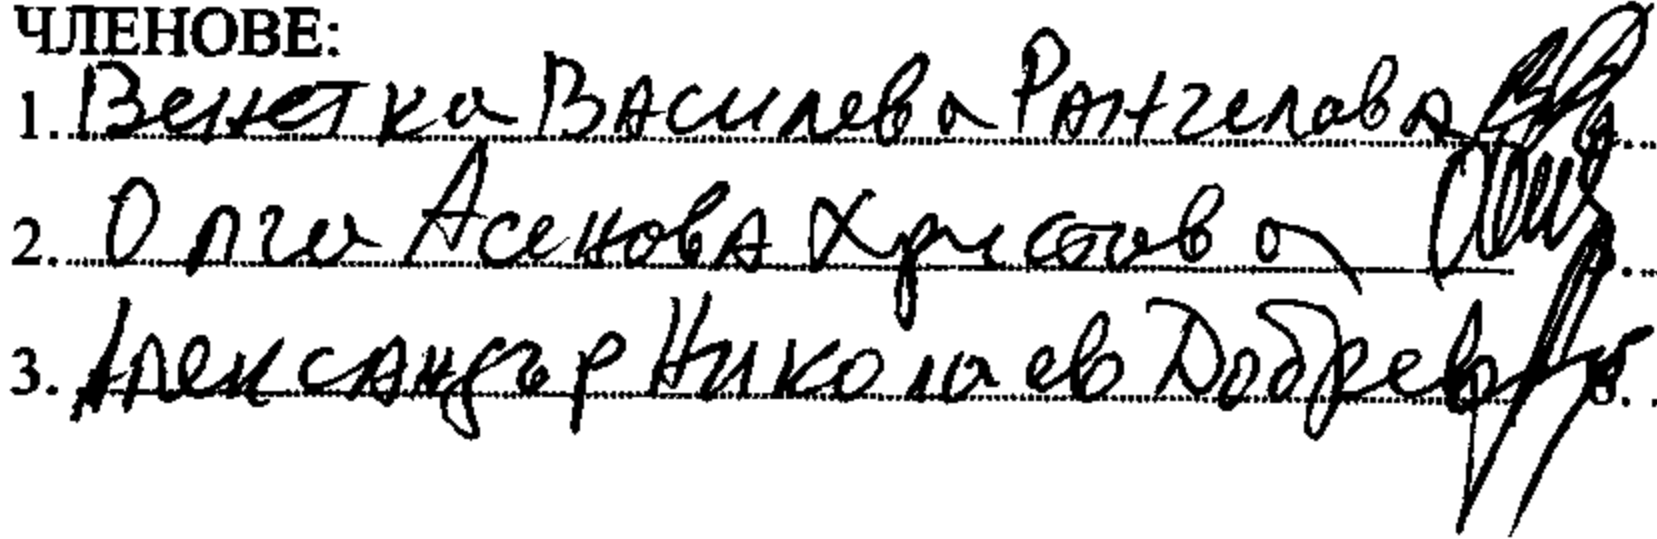 ЧЛЕНОВЕ:
1. Венетка Василева Рангелова
2. Олга Асенова Христова
3. Александър Николаев Добрев